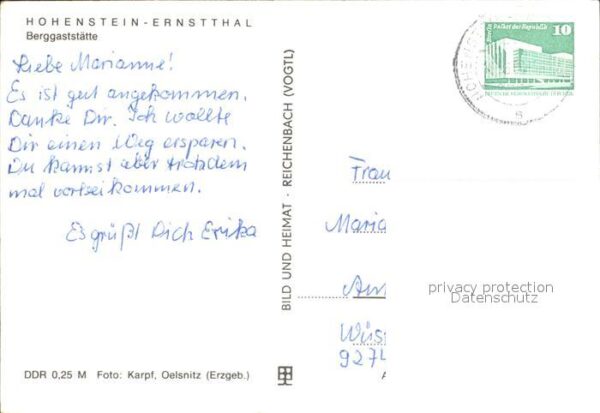 HOHENSTEIN-ERNSTTHAL
Berggaststätte
Liebe Marianne!
Es ist gut angekommen.
Danke Dir. Ich wollte
Dir einen Weg ersparen.
Du kannst aber trotzdem
mal vorbeikommen.
Es grüßt Dich Erika
DDR 0,25 M Foto: Karpf, Oelsnitz (Erzgeb.)
BILD UND HEIMAT · REICHENBACH (VOGTL)
10
Palast der Republik
Frau
Maria
privacy protection
Datenschutz
Wüs